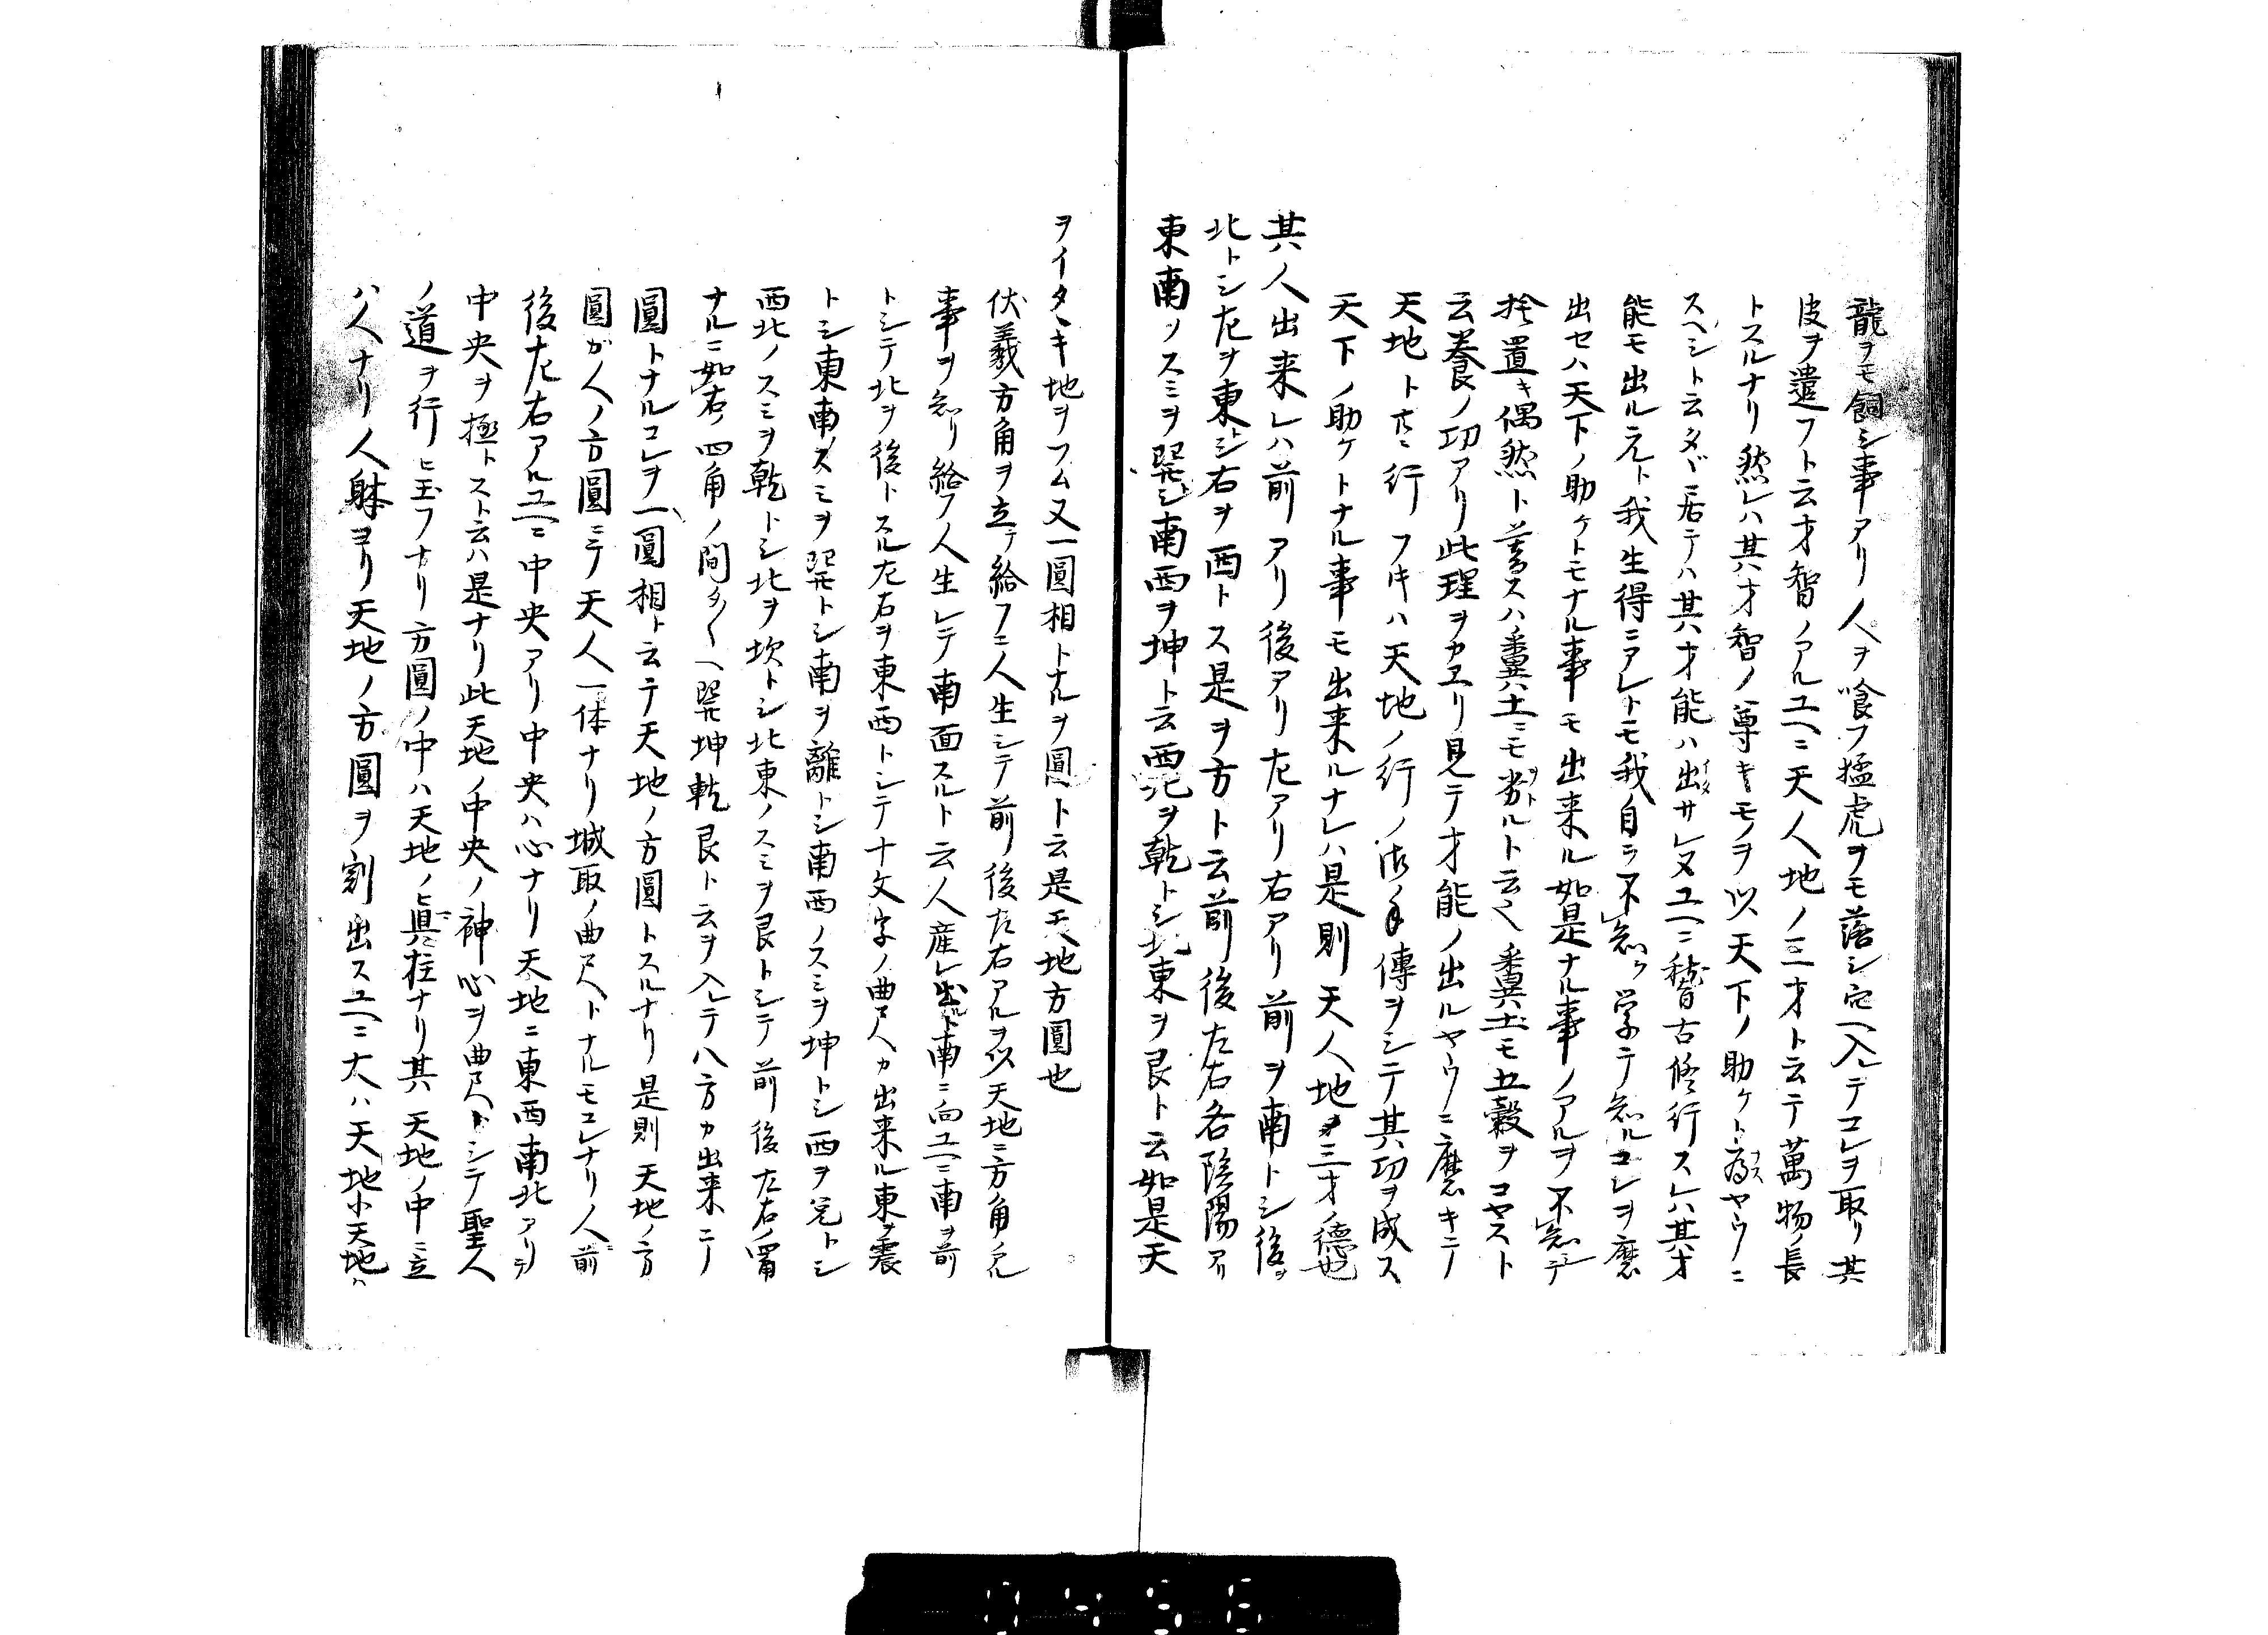 龍ヲモ飼シ事アリ人ヲ喰フ猛虎ヲモ落シ穴ヘ入レテコレヲ取リ其
皮ヲ遣フト云才智ノアルユヘニ天人地ノ三才ト云テ萬物ノ長
トスルナリ然レハ其才智ノ尊キモノヲ以天下ノ助ケト為ヤウニ
スヘシト云タヾ居テハ其才能ハ出サレヌユヘニ稽古修行スレハ其才
能モ出ル元ト我生得ニアレトモ我自ラ不知学テ知ルコレヲ磨
出セハ天下ノ助ケトモナル事モ出来ル如是ナル事ノアルヲ不知シテ
捨置キ偶然ト暮スハ糞土ニモ劣ルト云ヘ糞土モ五穀ヲコヤスト
云養ノ功アリ此理ヲカエリ見テ才能ノ出ルヤウニ磨キテ
天地ト共ニ行フキハ天地ノ行ノ傳ヲシテ其功ヲ成ス
天下ノ助ケトナル事モ出来ルナレハ是則天人地ヲ三才ノ徳也
其人出来レハ前アリ後アリ左アリ右アリ前ヲ南トシ後ヲ
北トシ左ヲ東トシ右ヲ西トス是ヲ方ト云前後左右各陰陽アリ
東南ノスミヲ巽トシ南西ヲ坤ト云西北ヲ乾トシ北東ヲ艮ト云如是天
ヲイタヽキ地ヲフム又一圓相トナルヲ圓ト云是天地方圓也
伏羲方角ヲ立テ給フニ人生シテ前後左右アルヲ以天地ニ方角ノアル
事ヲ知リ給フ人生レテ南面スルト云人産レ出ルト南ニ向ユヘニ南ヲ前
トシテ北ヲ後トスル左右ヲ東西トシテ十文字ノ曲尺カ出来ル東ヲ震
トシ東南ノスミヲ巽トシ南ヲ離トシ南西ノスミヲ坤トシ西ヲ兌トシ
西北ノスミヲ乾トシ北ヲ坎トシ北東ノスミヲ艮トシテ前後左右ノ
ナルニ如右ノ四角ノ間タ〱ヘ巽坤乾艮ト云ヲ入レテ八方カ出来ニテ
圓トナルコレヲ一圓相ト云テ天地ノ方圓トスルナリ是則天地ノ方
圓ガ人ノ方圓ニテ天人一体ナリ城取ノ曲尺トナルモコレナリ人前
後左右アルユヘニ中央アリ中央ハ心ナリ天地ニ東西南北アリテ
中央ヲ極トスト云ハ是ナリ此天地ノ中央ノ神心ヲ曲尺トシテ聖人
ノ道ヲ行ヒ玉フナリ方圓ノ中ハ天地ノ眞柱ナリ其天地ノ中ニ立
ハ人ナリ人躰ヨリ天地ノ方圓ヲ割出スユヘニ大ハ天地小天地ハ